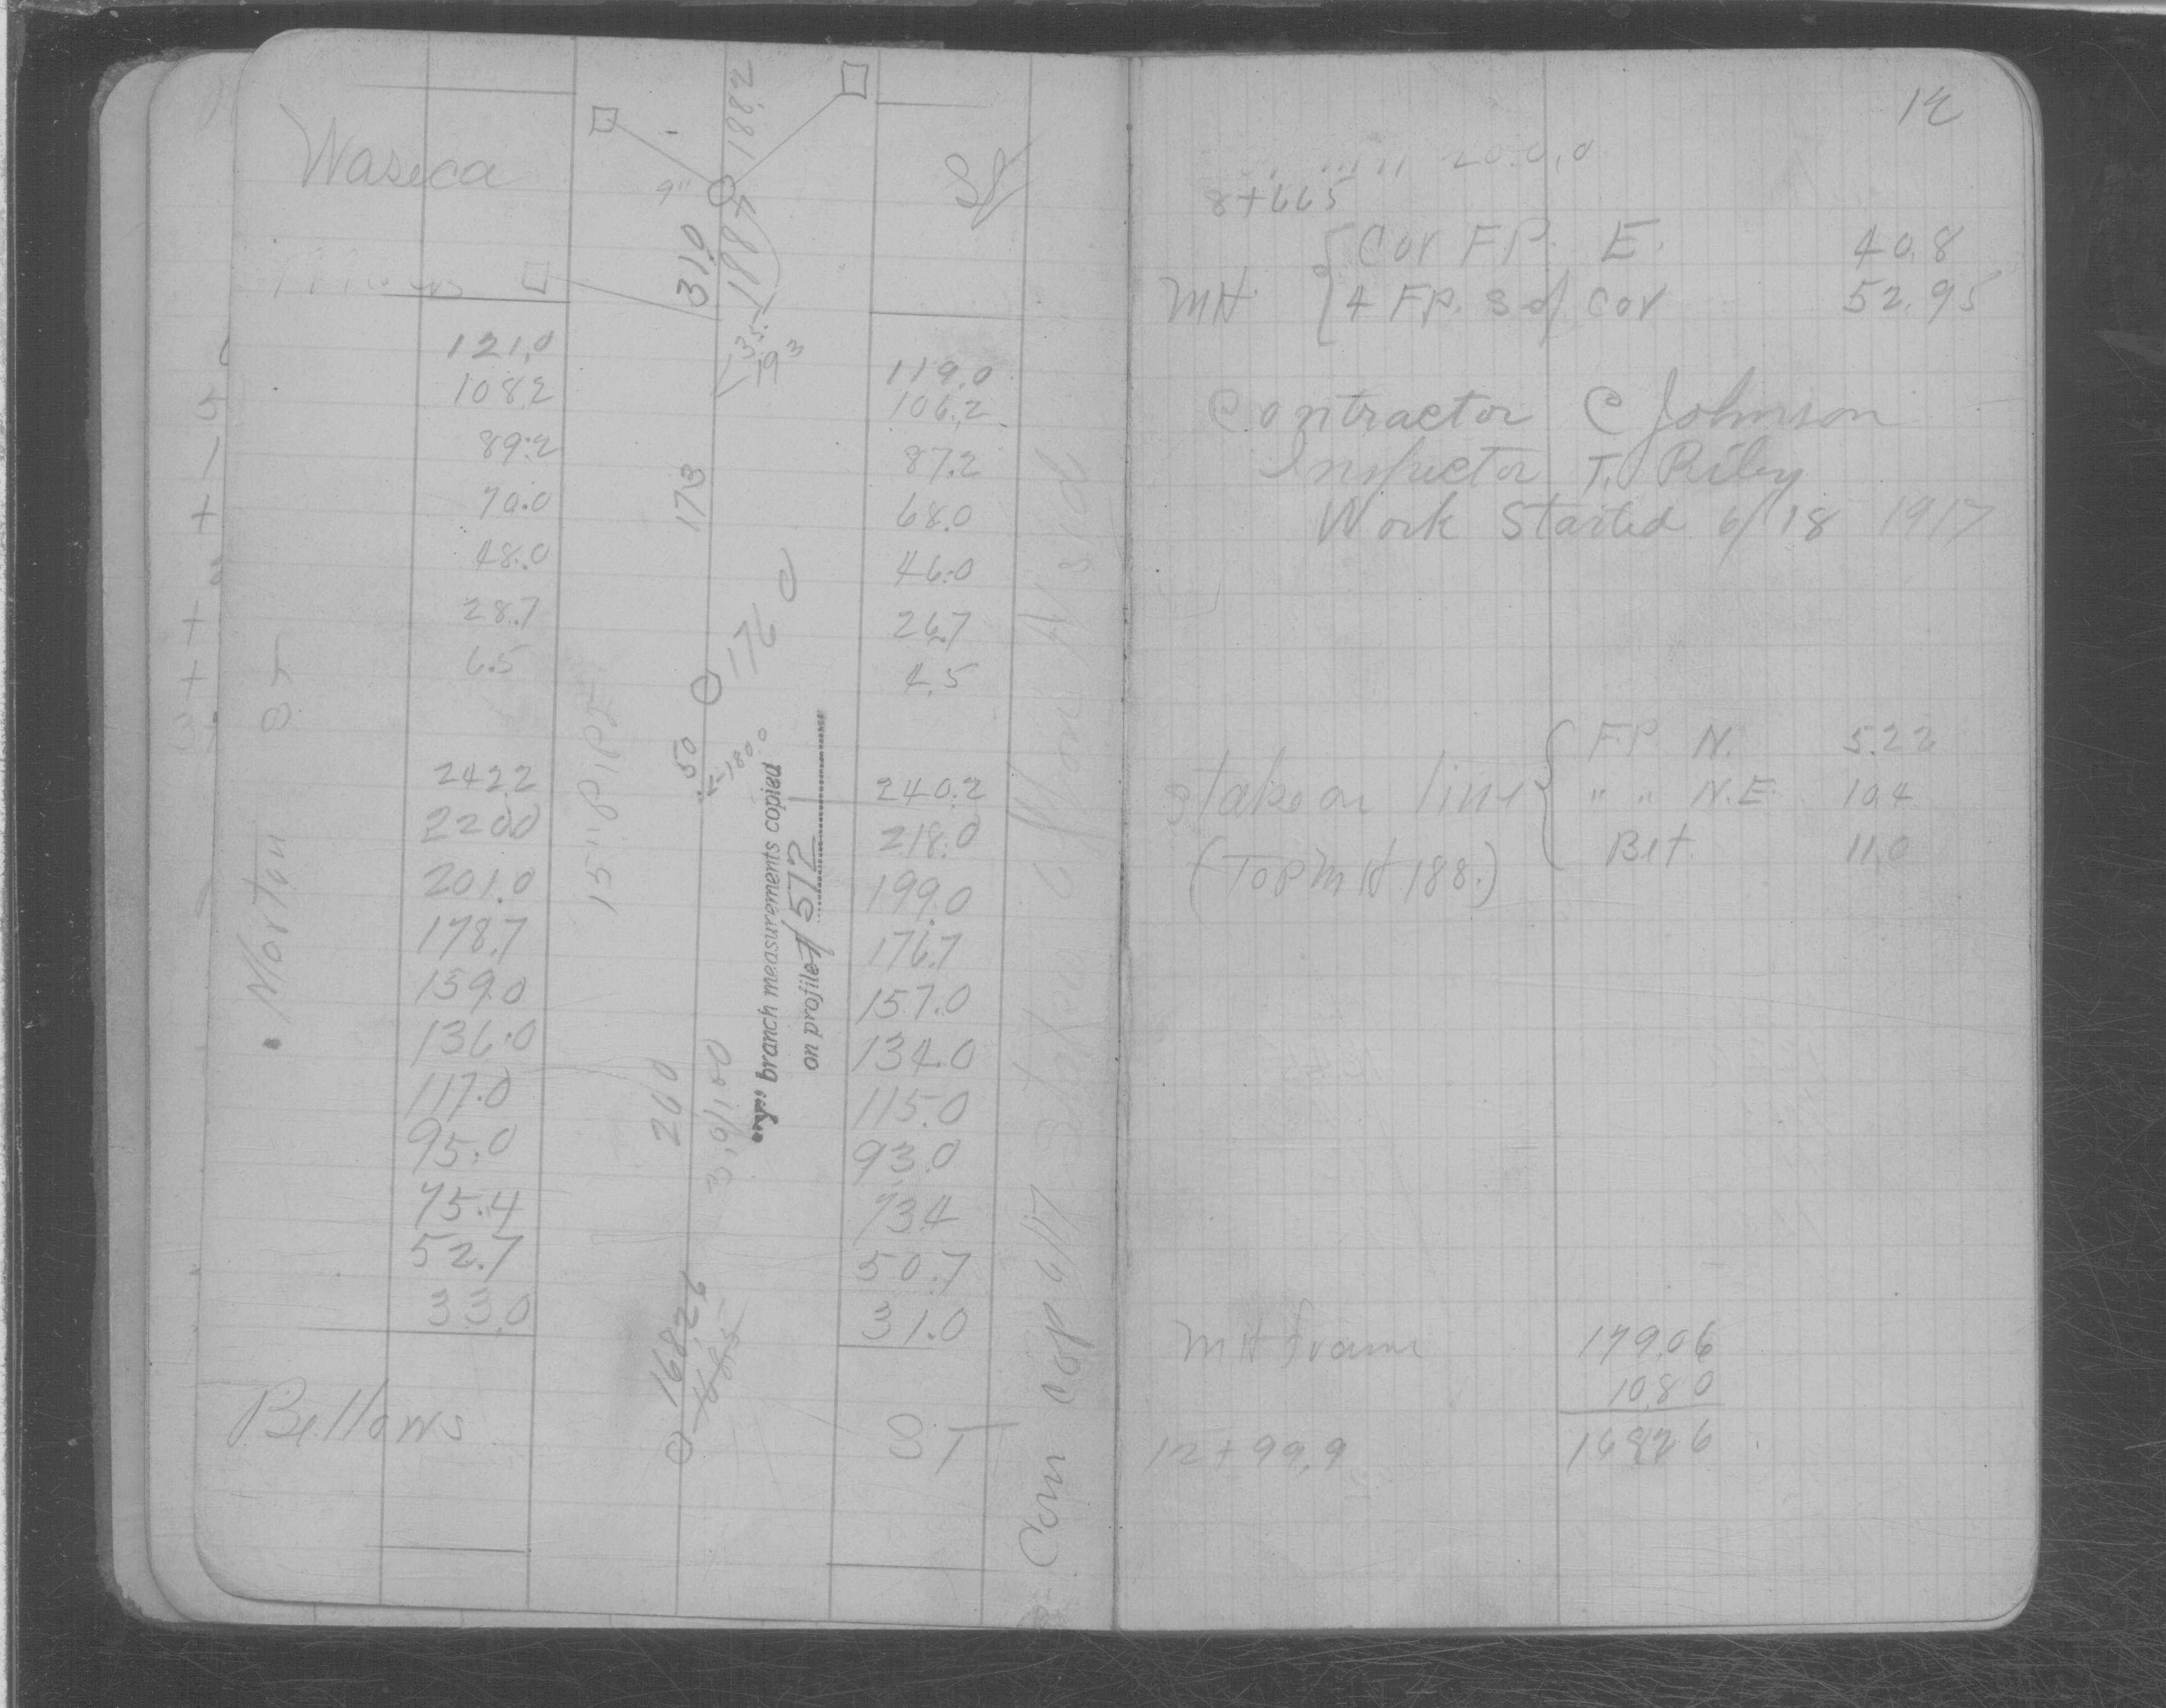 Waseca St
188.2
9"
31.0
188.7
121.0 119.0
108.2 106.2
89.2 87.2
173
70.0 68.0
48.0 46.0
28.7 26.7
176
6.5 4.5
Norton St
15" PIPE
50
180.0
242.2 240.2
220.0 218.0
201.0 199.0
178.7 176.7
159.0 157.0
136.0 134.0
117.0 115.0
95.0 93.0
75.4 73.4
52.7 50.7
33.0 31.0
260
branch measurements copied
on profile 1572
168.26
168.5
Bellows ST
12
8+665
Cor FP. E. 40.8
MH 4 FP. S of Cor 52.95
Contractor C Johnson
Inspector T. Riley
Work Started 6/18 1917
FP N. 5.22
Stake on line " " N.E. 10.4
(TOP MH 188.) Bet. 11.0
MH frame 179.06
10.80
12+99.9 168.26